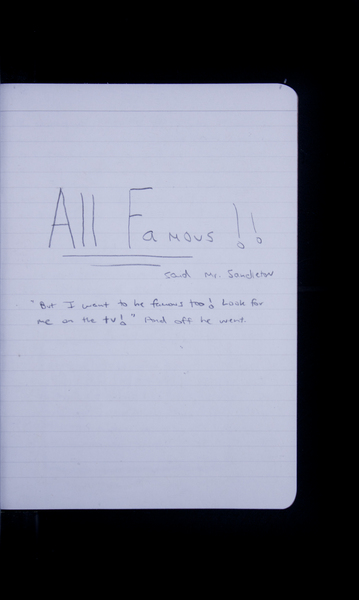 All Famous !!
said Mr. Sandletow
"But I want to be famous too! Look for
me on the tv!" And off he went.